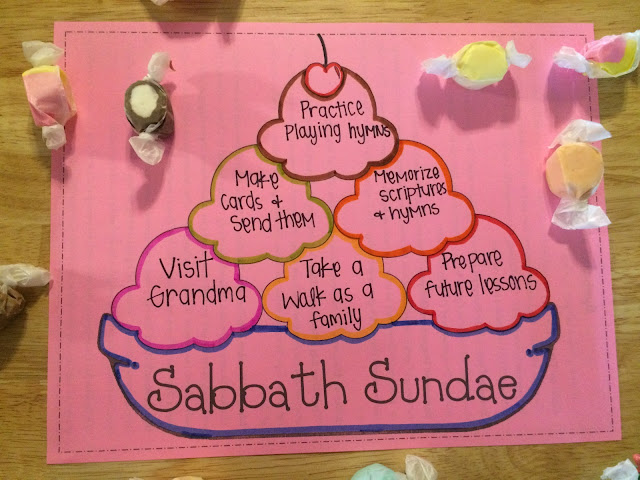 Practice
Playing hymns
Make
cards &
Send them
Memorize
scriptures
& hymns
Visit
Grandma
Take a
walk as a
family
Prepare
future lessons
Sabbath Sundae